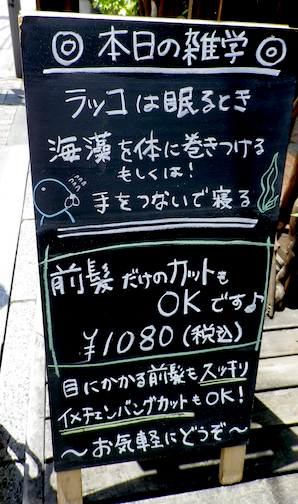 ◎本日の雑学◎
ラッコは眠るとき
海藻を体に巻きつける
もしくは!
手をつないで寝る
前髪だけのカットも
OKです♪
¥1080(税込)
目にかかる前髪もスッキリ
イメチェンバングカットもOK!
〜お気軽にどうぞ〜